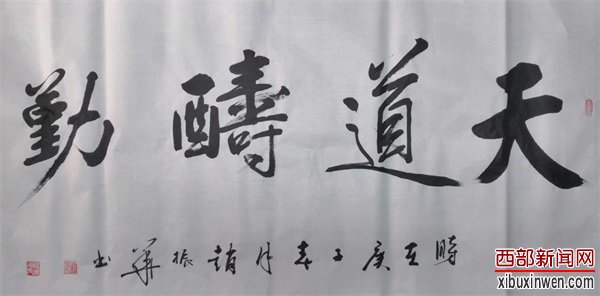 天道酬勤
時在庚子春月趙振華书
西部新闻网
xibuxinwen.com